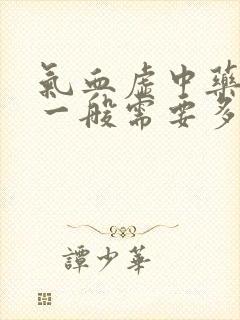 氣血虛中藥
一般需要多
譚少華